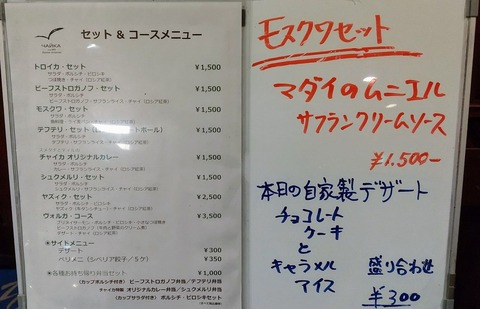 ЧАЙКА
セット & コースメニュー
トロイカ・セット ¥1,500
サラダ・ボルシチ・ピロシキ
つぼ焼き・チャイ(ロシア紅茶)
ビーフストロガノフ・セット ¥1,500
サラダ・ボルシチ
ビーフストロガノフ・サフランライス・チャイ(ロシア紅茶)
モスクワ・セット ¥1,500
サラダ・ボルシチ
チャイ(ロシア紅茶)
テフテリ・セット ¥1,500
サラダ・ボルシチ
テフテリ・サフランライス・チャイ(ロシア紅茶)
チャイカ オリジナルカレー ¥1,500
サラダ・ボルシチ
カレー・サフランライス・チャイ(ロシア紅茶)
シュクメルリ・セット ¥1,500
サラダ・ボルシチ
シュクメルリ・サフランライス・チャイ(ロシア紅茶)
ヤズィク・セット ¥2,500
サラダ・ボルシチ・ピロシキ
ヤズィク(牛タンシチュー)・チャイ(ロシア紅茶)
ヴォルガ・コース ¥3,500
デザート・チャイ(ロシア紅茶)
*サイドメニュー
デザート ¥300
ペリメニ(シベリア餃子/5ケ) ¥350
*各種お持ち帰り弁当セット ¥1,000
(カップボルシチ付き) ビーフストロガノフ弁当/テフテリ弁当
チャイカ特製 オリジナルカレー弁当/シュクメルリ弁当
(カップサラダ付き) ボルシチ・ピロシキセット
モスクワセット
マダイのムニエル
サフランクリームソース
¥1,500-
本日の自家製デザート
チョコレート
ケーキ
と
キャラメル 盛り合わせ
アイス ¥300